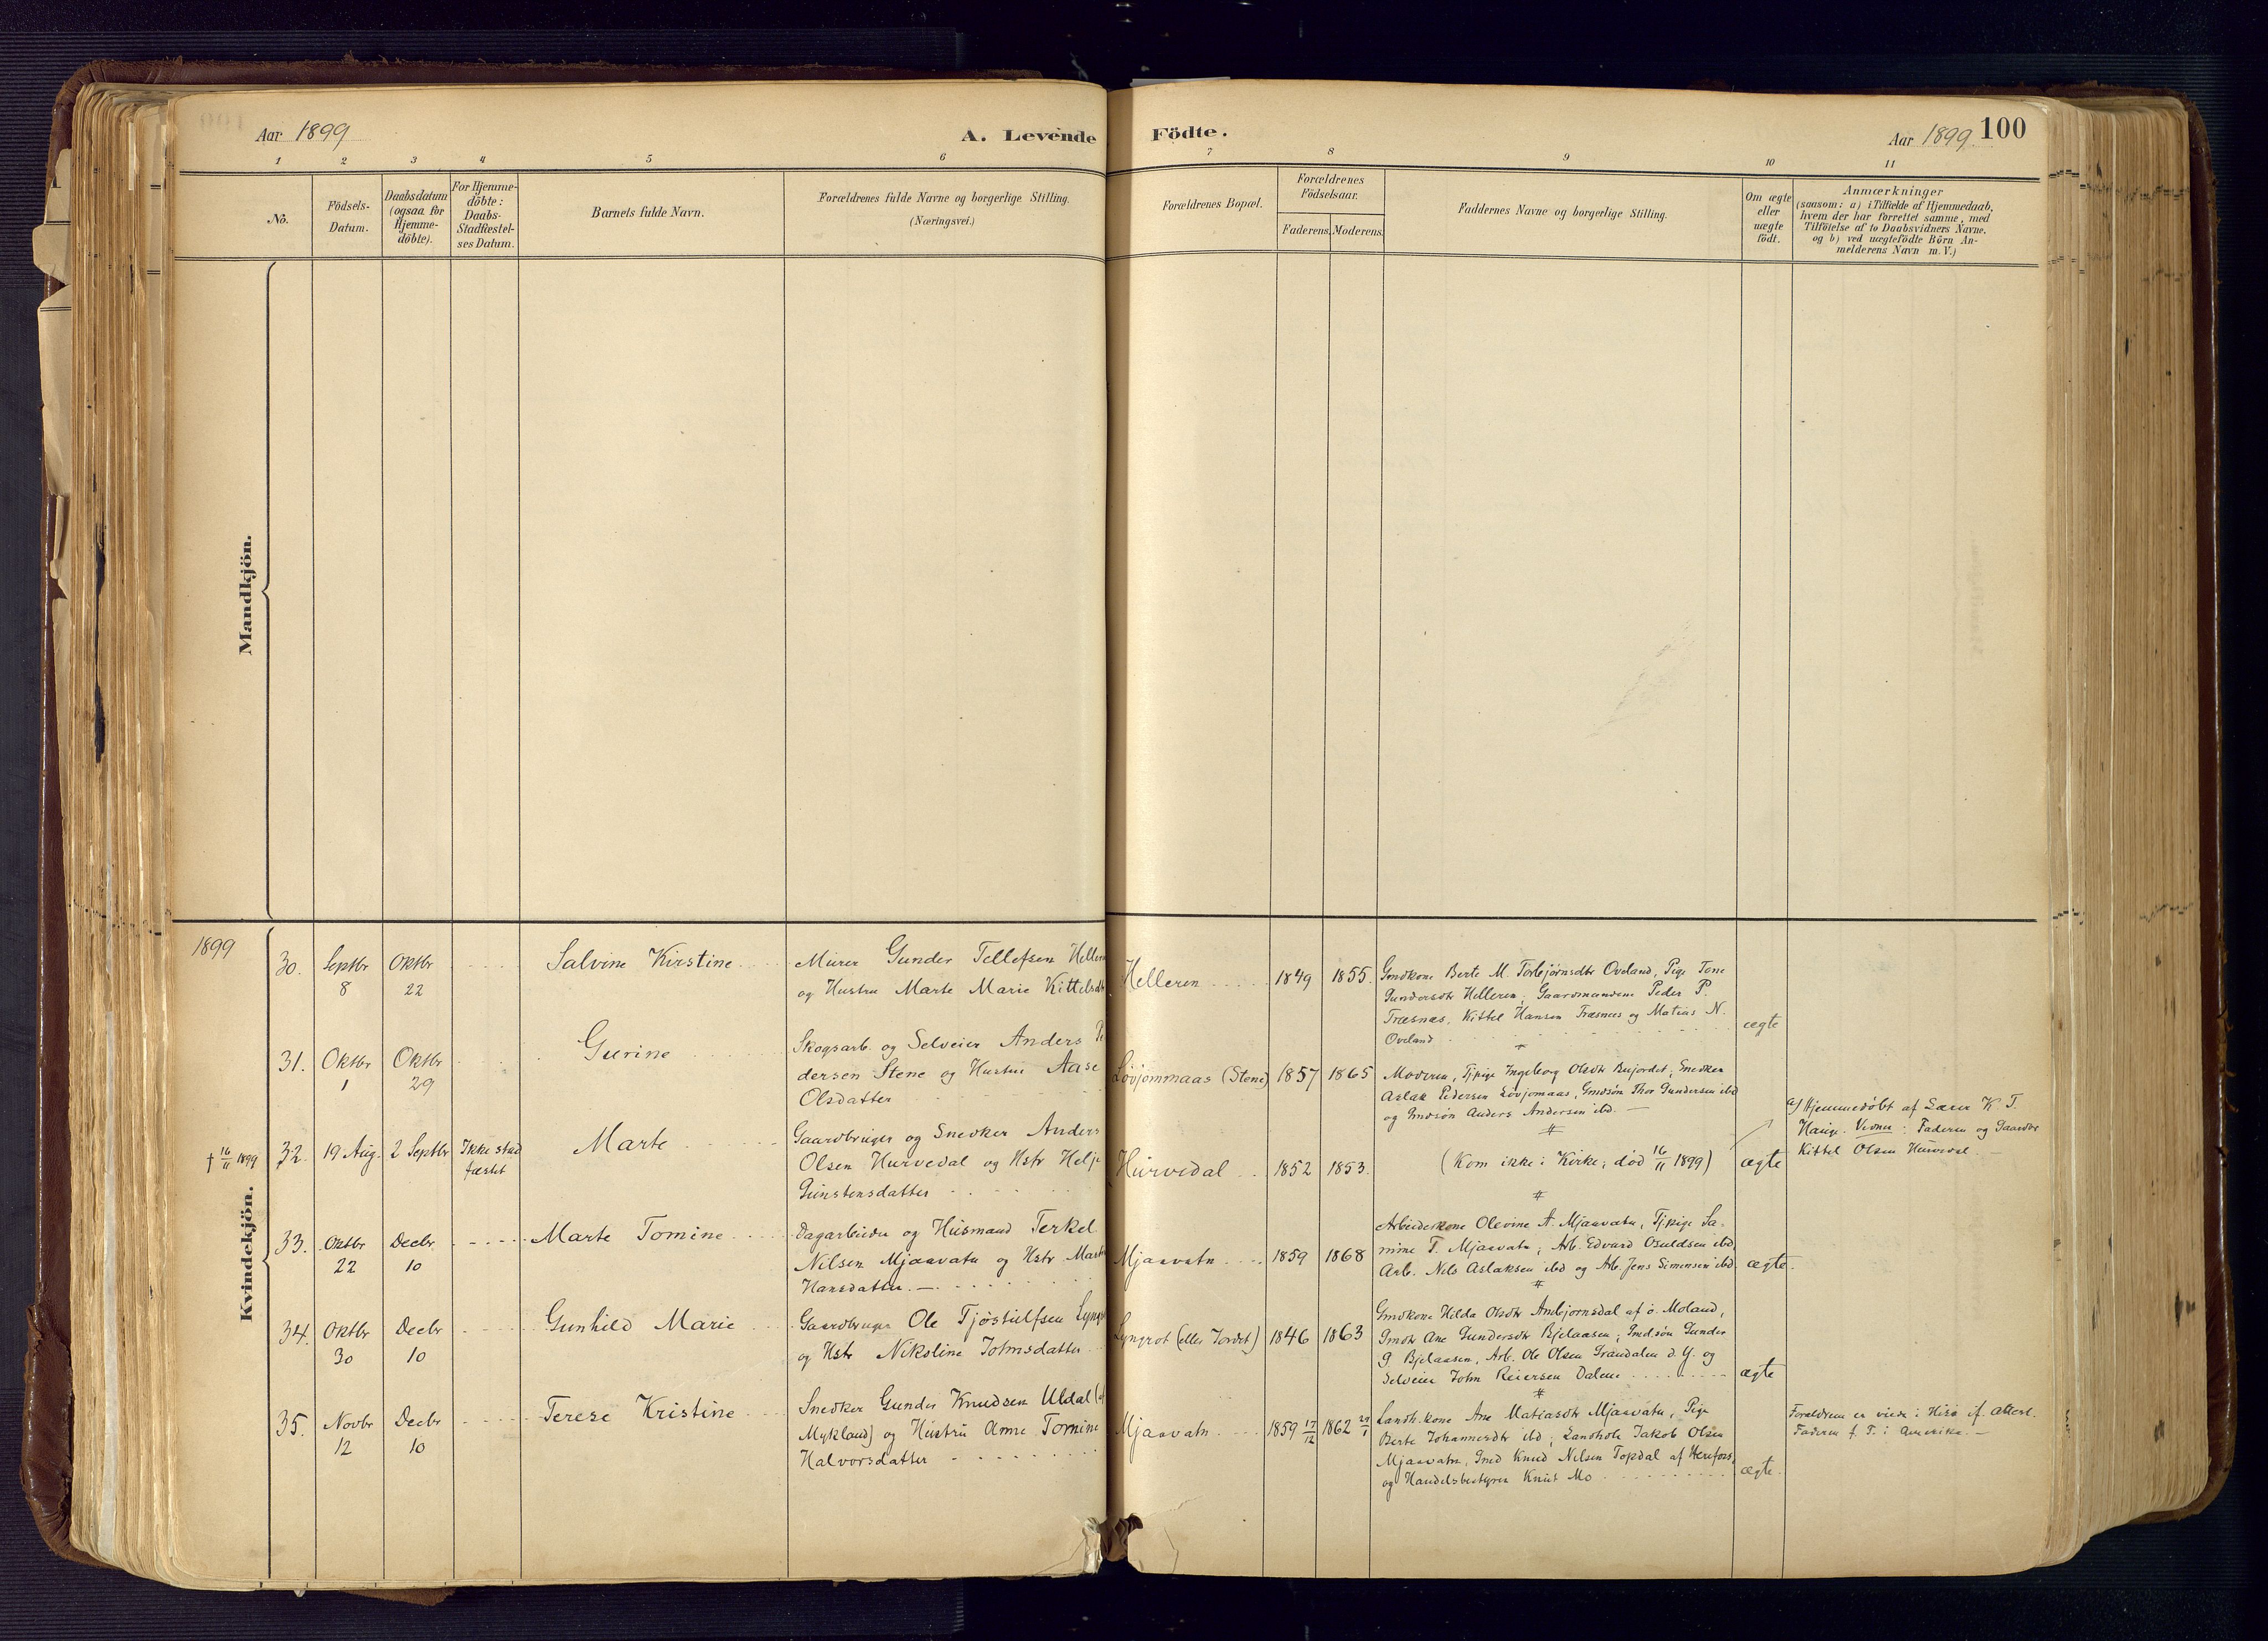 Aar 1899
A. Levende
Födte.
Aar 1899.
100
1 2 3 4 5 6 7 8 9 10 11
No.
Födsels-
Datum.
Daabsdatum
(ogsaa for
Hjemme-
döbte).
For Hjemme-
döbte:
Daabs-
Stadfæstel-
ses Datum.
Barnets fulde Navn.
Forældrenes fulde Navne og borgerlige Stilling.
(Næringsvei.)
Forældrenes Bopæl.
Forældrenes
Födselsaar.
Faderens. Moderens.
Faddernes Navne og borgerlige Stilling.
Om ægte
eller
uægte
födt.
Anmærkninger
(saasom: a) i Tilfælde af Hjemmedaab,
hvem der har forrettet samme, med
Tilföielse af to Daabsvidners Navne.
og b) ved uægtefödte Börn An-
melderens Navn m. V.)
Mandkjön.
Kvindekjön.
1899
30.
Septbr
8
Oktbr
22
Salvine Kirstine
Murer Gunder Tellefsen Helleren
og Hustru Marte Marie Kittelsdtr
Helleren
1849
1855.
Gmdkone Berte M. Torbjørnsdtr Oveland, Pige Tone
Gundersdtr Helleren, Gaardmændene Peder P.
Træsnæs, Kittel Hansen Træsnæs og Matias N.
Oveland
ægte
31.
Oktbr
1
Oktbr
29
Gurine
Skogsarb. og Selveier Anders Pe
dersen Stene og Hustru Aase
Olsdatter
Løvjommaas (Stene)
1857
1865
Moderen, Tjpige Ingeborg Olsdtr Bujordet, Snedker
Aslak Pedersen Løvjomaas, Gmdsøn Thor Gundersen ibd
og Gmdsøn Anders Andersen ibd.
† 16/11 1899
32.
19 Aug.
2 Septbr
Ikke stad
fæstet
Marte
Gaardbruger og Snedker Anders
Olsen Hurvedal og Hstr Helje
Gunstensdatter
Hurvedal
1852
1853.
(Kom ikke i Kirke, død 16/11 1899)
ægte
a/ Hjemmedøbt af Lærer K. T.
Hauge. Vidner: Faderen og Gaardbr
Kittel Olsen Hurvedal.
33.
Oktbr
22
Decbr
10
Marte Tomine
Dagarbeider og Husmand Terkel
Nilsen Mjaavatn og Hstr Marte
Hansdatter.
Mjaavatn
1859
1868
Arbeiderkone Olevine A. Mjaavatn, Tjpige Sa-
mine T. Mjaavatn, Arb. Edvard Osuldsen ibd,
Arb. Nils Aslaksen ibd og Arb. Jens Simensen ibd
ægte.
34.
Oktbr
30
Decbr
10
Gunhild Marie
Gaardbruger Ole Tjøstulfsen Lyngrot
og Hstr Nikoline Johnsdatter
Lyngrot (eller Jordet)
1846
1863
Gmdkone Hilda Olsdtr Ambjørnsdal af ø. Moland,
Gmdtr Ane Gundersdtr Bjelaasen, Gmdsøn Gunder
G. Bjelaasen, Arb. Ole Olsen Grændalen d. Y. og
Selveier John Reiersen Dalene
ægte
35.
Novbr
12
Decbr
10
Terese Kristine
Snedker Gunder Knudsen Uldal (af
Mykland) og Hustru Anne Tomine
Halvorsdatter
Mjaavatn
1859 17/12
1862 27/1
Landh.kone Ane Matiasdtr Mjaavatn, Pige
Berte Johannesdtr ibd, Landhdl. Jakob Olsen
Mjaavatn, Gmd Knud Nilsen Topdal af Herefoss,
og Handelsbestyrer Knut Mo
ægte.
Forældrene er viede i Hisø if. attest.
Faderen f. T. i Amerika.